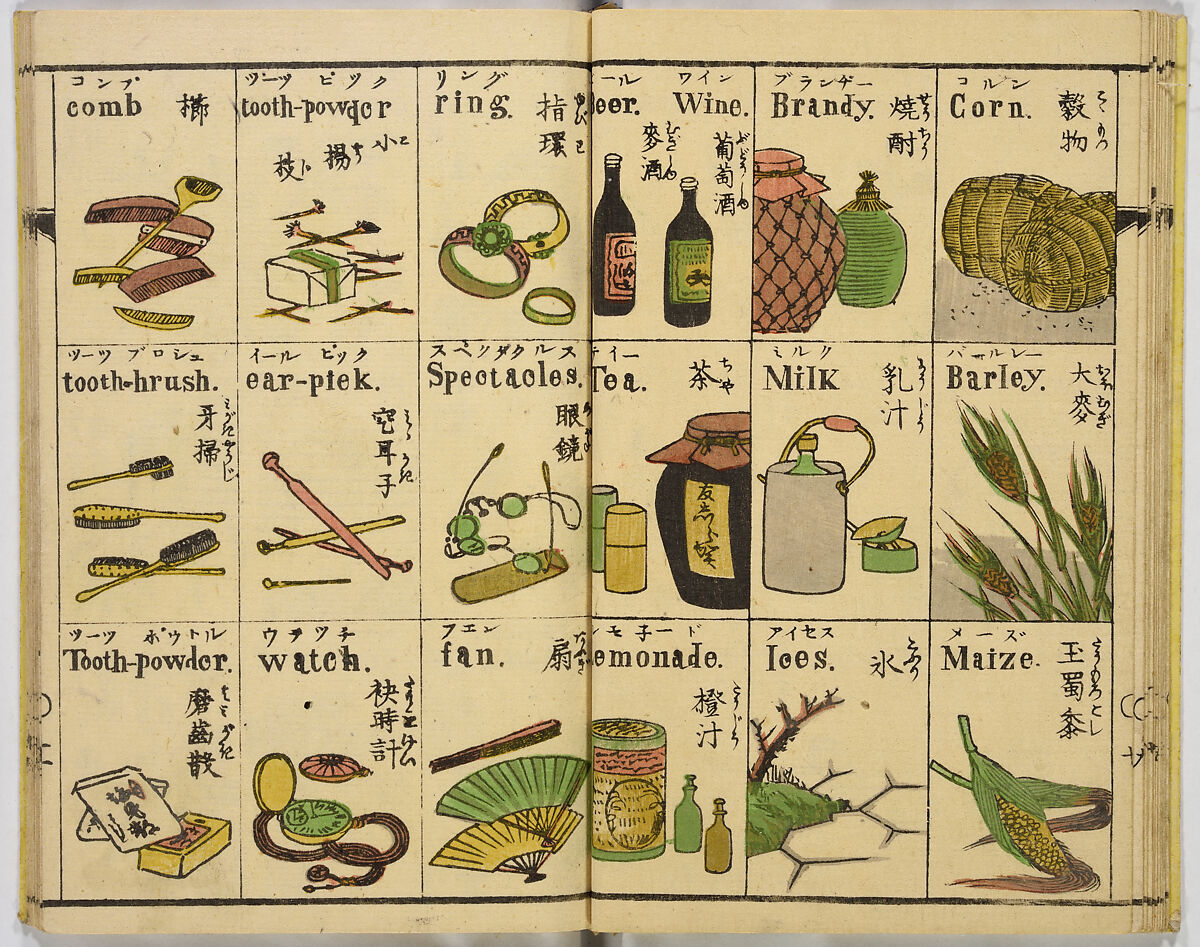 コンプ
comb 櫛
ツーツ ピック
tooth-powder
小
揚
枝
リング
ring.
指環
ール ワイン
Beer. Wine.
麥酒
葡萄酒
ブランヂー
Brandy.
燒酎
コルン
Corn.
穀物
ツーツ ブロシユ
tooth-hrush.
牙掃
イール ピック
ear-piek.
空耳子
スペクタクルス
Spectacles.
眼鏡
テイー
Tea.
茶 ちや
ミルク
Milk
乳汁
バールレー
Barley.
大麥
ツーツ ポウトル
Tooth-powder.
磨齒散
ウヲツチ
watch.
袂時計
フエン
fan.
扇
レモ子ード
emonade.
橙汁
アイセス
Ices.
氷
メーズ
Maize.
玉蜀黍